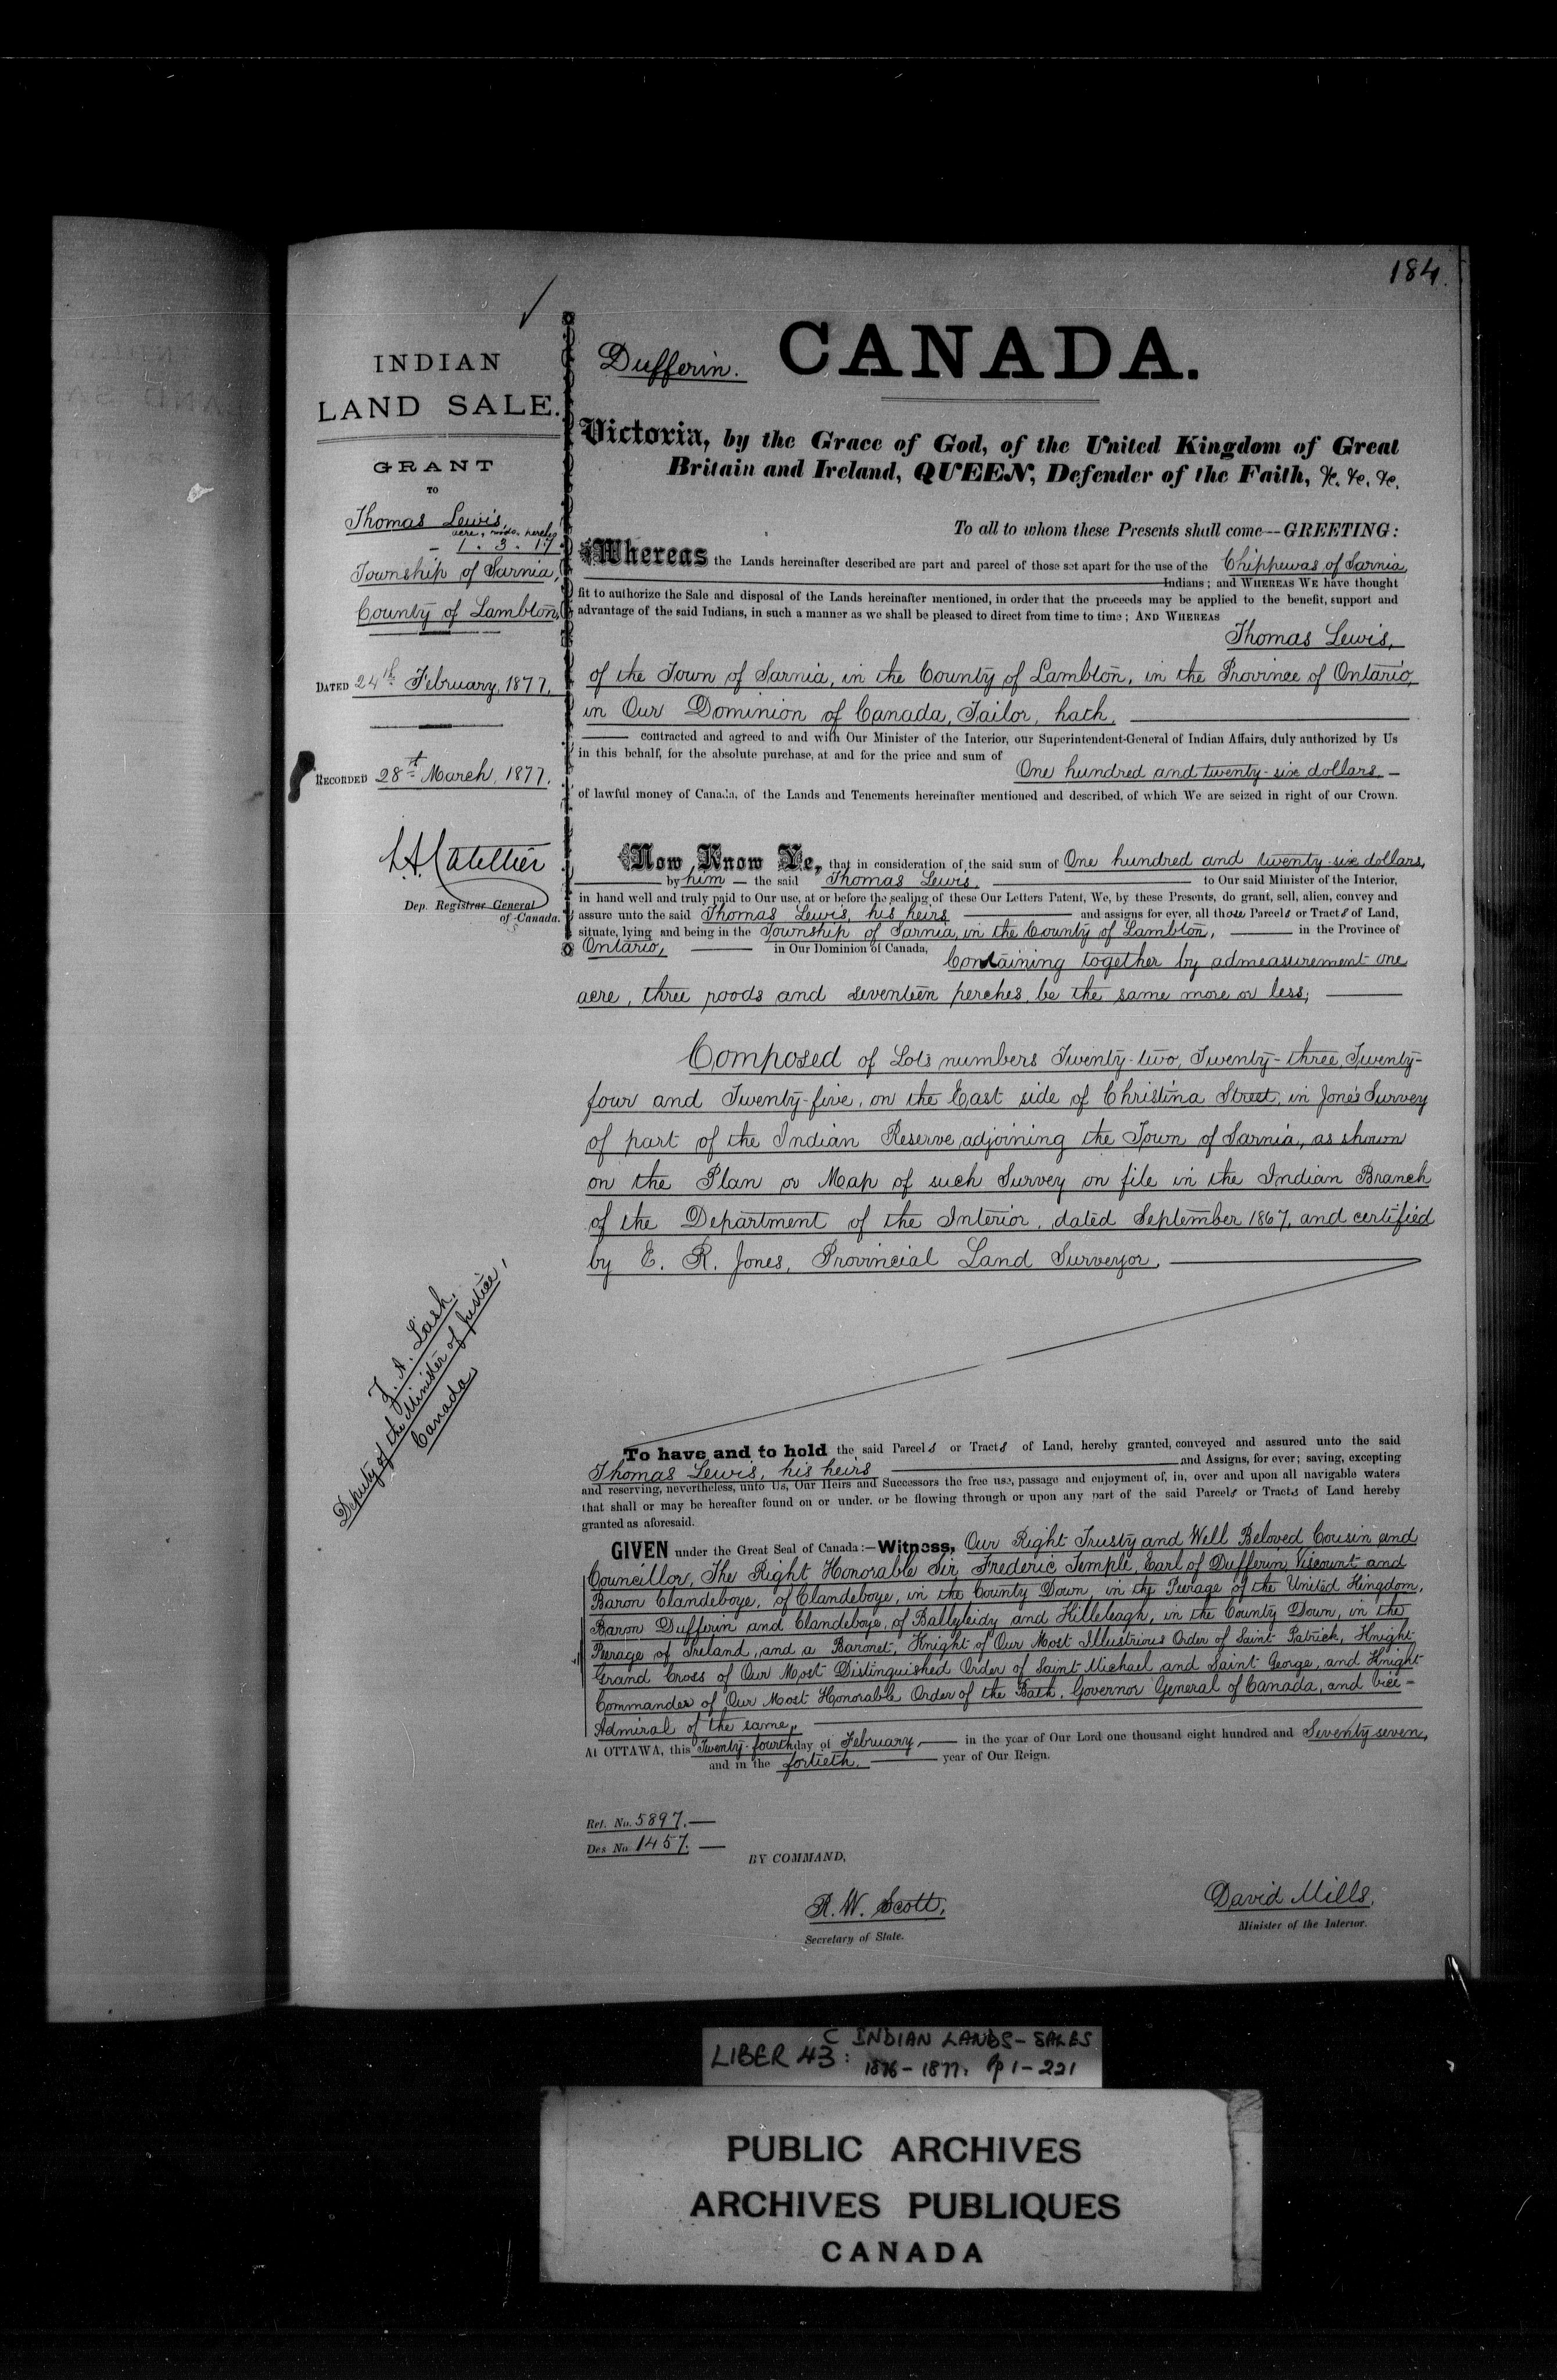 184.
INDIAN
LAND SALE.
GRANT
TO
Thomas Lewis,
acre, roods, perches
1. 3. 17.
Township of Sarnia,
County of Lambton,
DATED 24th February, 1877,
RECORDED 28th March, 1877,
Dep. Registrar General
of Canada.
Z. A. Lash,
Deputy of the Minister of Justice,
Canada
Dufferin. CANADA.
Victoria, by the Grace of God, of the United Kingdom of Great
Britain and Ireland, QUEEN, Defender of the Faith, &c. &c. &c.
To all to whom these Presents shall come—GREETING:
Whereas the Lands hereinafter described are part and parcel of those set apart for the use of the Chippewas of Sarnia,
Indians; and WHEREAS WE have thought
fit to authorize the Sale and disposal of the Lands hereinafter mentioned, in order that the proceeds may be applied to the benefit, support and
advantage of the said Indians, in such a manner as we shall be pleased to direct from time to time; AND WHEREAS
Thomas Lewis,
of the Town of Sarnia, in the County of Lambton, in the Province of Ontario,
in Our Dominion of Canada, Tailor, hath,
contracted and agreed to and with Our Minister of the Interior, our Superintendent-General of Indian Affairs, duly authorized by Us
in this behalf, for the absolute purchase, at and for the price and sum of
One hundred and twenty-six dollars—
of lawful money of Canada, of the Lands and Tenements hereinafter mentioned and described, of which We are seized in right of our Crown.
Now Know Ye, that in consideration of the said sum of One hundred and twenty-six dollars,
by him — the said Thomas Lewis, to Our said Minister of the Interior,
in hand well and truly paid to Our use, at or before the sealing of these Our Letters Patent, We, by these Presents, do grant, sell, alien, convey and
assure unto the said Thomas Lewis, his heirs and assigns for ever, all those Parcels or Tracts of Land,
situate, lying and being in the Township of Sarnia, in the County of Lambton, in the Province of
Ontario, in Our Dominion of Canada,
Containing together by admeasurement one
acre, three roods and seventeen perches, be the same more or less;
Composed of Lots numbers Twenty-two, Twenty-three, Twenty-
four and Twenty-five, on the East side of Christina Street, in Jones Survey
of part of the Indian Reserve adjoining the Town of Sarnia, as shown
on the Plan or Map of such Survey on file in the Indian Branch
of the Department of the Interior, dated September 1867, and certified
by E. R. Jones, Provincial Land Surveyor,
To have and to hold the said Parcels or Tracts of Land, hereby granted, conveyed and assured unto the said
Thomas Lewis, his heirs and Assigns, for ever; saving, excepting
and reserving, nevertheless, unto Us, Our Heirs and Successors the free use, passage and enjoyment of, in, over and upon all navigable waters
that shall or may be hereafter found on or under, or be flowing through or upon any part of the said Parcels or Tracts of Land hereby
granted as aforesaid.
GIVEN under the Great Seal of Canada:—Witness, Our Right Trusty and Well Beloved Cousin and
Councillor, The Right Honorable Sir Frederic Temple, Earl of Dufferin, Viscount and
Baron Clandeboye, of Clandeboye, in the County Down, in the Peerage of the United Kingdom,
Baron Dufferin and Clandeboye, of Ballyleidy and Killeleagh, in the County Down, in the
Peerage of Ireland, and a Baronet, Knight of Our Most Illustrious Order of Saint Patrick, Knight
Grand Cross of Our Most Distinguished Order of Saint Michael and Saint George, and Knight
Commander of Our Most Honorable Order of the Bath, Governor General of Canada, and Vice-
Admiral of the same,
At OTTAWA, this Twenty-fourth day of February, in the year of Our Lord one thousand eight hundred and Seventy seven,
and in the fortieth, year of Our Reign.
Ref. No. 5897.—
Des No. 1457.—
BY COMMAND,
R. W. Scott,
Secretary of State.
David Mills,
Minister of the Interior.
LIBER 43: C INDIAN LANDS - SALES
1876-1877. pp 1-221
PUBLIC ARCHIVES
ARCHIVES PUBLIQUES
CANADA